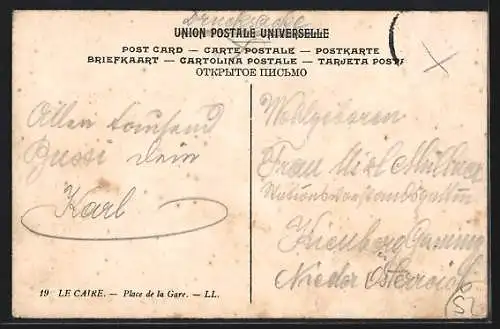 Drucksache
UNION POSTALE UNIVERSELLE
POST CARD — CARTE POSTALE — POSTKARTE
BRIEFKAART — CARTOLINA POSTALE — TARJETA POST
ОТКРЫТОЕ ПИСЬМО
Allen tausend
Bussi Dein
Karl
Wohlgeboren
Frau
Kienberg Gaming
Nieder Österreich
19 LE CAIRE. — Place de la Gare. — LL.